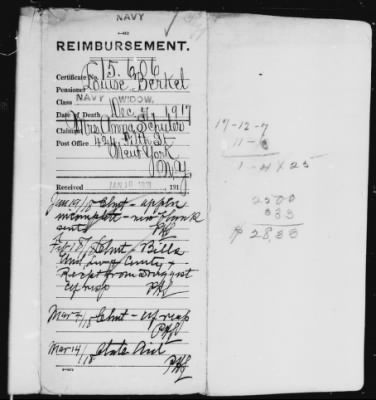 NAVY
REIMBURSEMENT.
Certificate No. 15.606
Pensioner Louise Berkel
Class NAVY WIDOW.
Date of Death Dec 7, 1917
Claimant Mrs Anna Schuler
Post Office 424 St
New York
N.Y.
Received 191
Jan 19/18 Clmt - appln
incomplete - new blank
sent PHL
Feb 18/18 Clmt Bills
Und.
Recpt from Druggist
PHL
Mar 7/18 Clmt -
PHL
Mar 14/18 State Aid
PHL
17-12-7
11-
1-4 x 25
25 00
3 33
$ 28,33